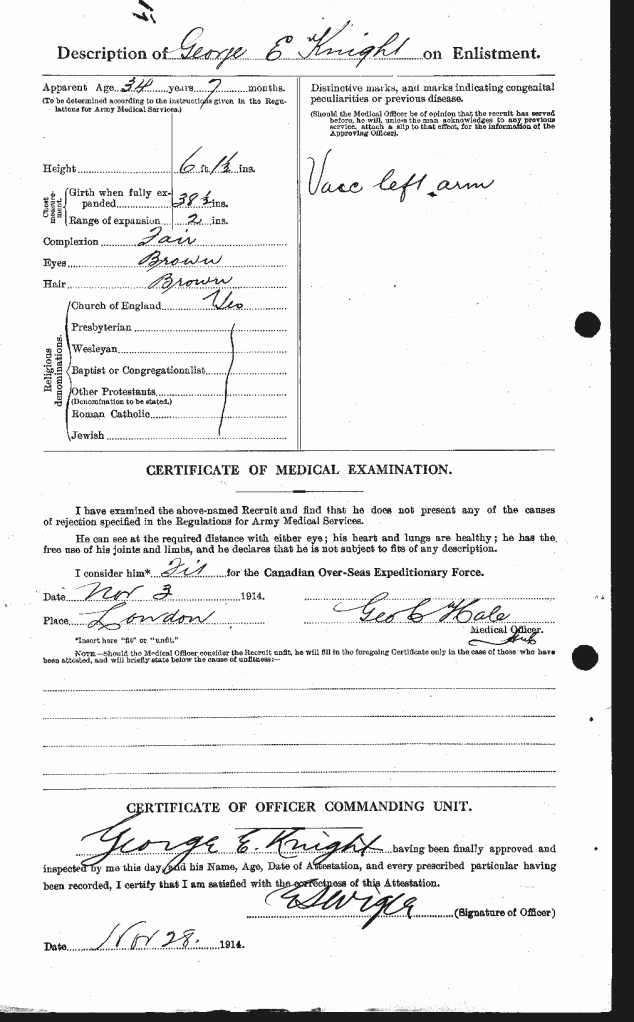 Description of George E Knight on Enlistment.
Apparent Age 34 years 7 months.
(To be determined according to the instructions given in the Regulations for Army Medical Services.)
Height 6 ft. 1½ ins.
Chest measurement.
Girth when fully expanded 38½ ins.
Range of expansion 2 ins.
Complexion Fair
Eyes Brown
Hair Brown
Religious denominations.
Church of England Yes
Presbyterian
Wesleyan
Baptist or Congregationalist
Other Protestants
(Denomination to be stated.)
Roman Catholic
Jewish
Distinctive marks, and marks indicating congenital
peculiarities or previous disease.
(Should the Medical Officer be of opinion that the recruit has served
before, he will, unless the man acknowledges to any previous
service, attach a slip to that effect, for the information of the
Approving Officer).
Vacc left arm
CERTIFICATE OF MEDICAL EXAMINATION.
I have examined the above-named Recruit and find that he does not present any of the causes
of rejection specified in the Regulations for Army Medical Services.
He can see at the required distance with either eye; his heart and lungs are healthy; he has the
free use of his joints and limbs, and he declares that he is not subject to fits of any description.
I consider him* Fit for the Canadian Over-Seas Expeditionary Force.
Date Nov 3 1914.
Place London
Geo C Hale
Medical Officer.
*Insert here "fit" or "unfit."
NOTE.—Should the Medical Officer consider the Recruit unfit, he will fill in the foregoing Certificate only in the case of those who have
been attested, and will briefly state below the cause of unfitness:—
CERTIFICATE OF OFFICER COMMANDING UNIT.
George E. Knight having been finally approved and
inspected by me this day, and his Name, Age, Date of Attestation, and every prescribed particular having
been recorded, I certify that I am satisfied with the correctness of this Attestation.
(Signature of Officer)
Date Nov 28. 1914.